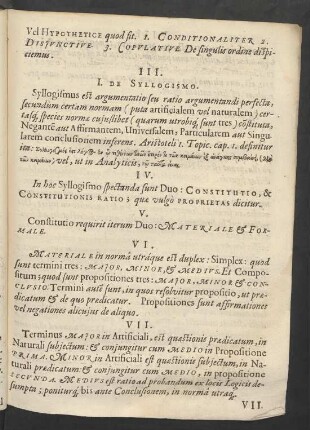 Vel HYPOTHETICE quod fit. 1. CONDITIONALITER 2.
DISJUNCTIVE 3. COPULATIVE De singulis ordine dispi-
ciemus.
III.
I. DE SYLLOGISMO.
Syllogismus est argumentatio seu ratio argumentandi perfecta,
secundum certam normam (puta artificialem vel naturalem) cer-
tasq́; species normæ cujuslibet (quarum utrobiq; sunt tres) cõstituta,
Negantẽ aut Affirmantem, Universalem, Particularem aut Singu-
larem conclusionem inferens. Aristoteli 1. Topic. cap. 1. definitur
ita.
vel, ut in Analyticis,
IV.
In hoc Syllogismo spectanda sunt Duo: CONSTITUTIO, &
CONSTITUTIONIS RATIO: quæ vulgò PROPRIETAS dicitur.
V.
Constitutio requirit iterum Duo: MATERIALE & FOR-
MALE.
VI.
MATERIALE in normâ utrâque est duplex: Simplex: quod
sunt termini tres: MAJOR, MINOR, & MEDIUS. Et Compo-
situm: quod sunt propositiones tres: MAJOR, MINOR & CON-
CLUSIO. Termini autẽ sunt, in quos resolvitur propositio, ut præ-
dicatum & de quo prædicatur. Propositiones sunt affirmationes
vel negationes alicujus de aliquo.
VII.
Terminus MAJOR in Artificiali, est quæstionis prædicatum, in
Naturali subjectum: & conjungitur cum MEDIO in Propositione
PRIMA. MINOR in Artificiali est quæstionis subjectum, in Na-
turali prædicatum: & conjungitur cum MEDIO, in propositione
SECUNDA. MEDIUS est ratio ad probandum ex locis Logicis de-
sumpta; poniturq́; bis ante Conclusionem, in normâ utrâq;
VII.